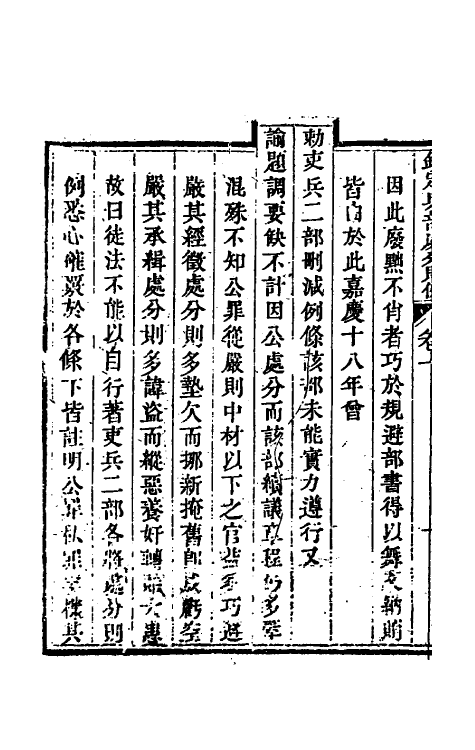 因此廢黜不肖者巧於規避部書得以舞文納賄
皆由於此嘉慶十八年曾
勅吏兵二部刪減例條該部未能實力遵行又
諭題調要缺不計因公處分而該部續議章程仍多牽
混殊不知公罪從嚴則中材以下之官皆巧避
嚴其經徵處分則多墊欠而挪新掩舊卽成虧空
嚴其承緝處分則多諱盜而縱惡養奸轉大患
故曰徒法不能以自行著吏兵二部各將處分則
例悉心確覈於各條下皆註明公罪私罪其